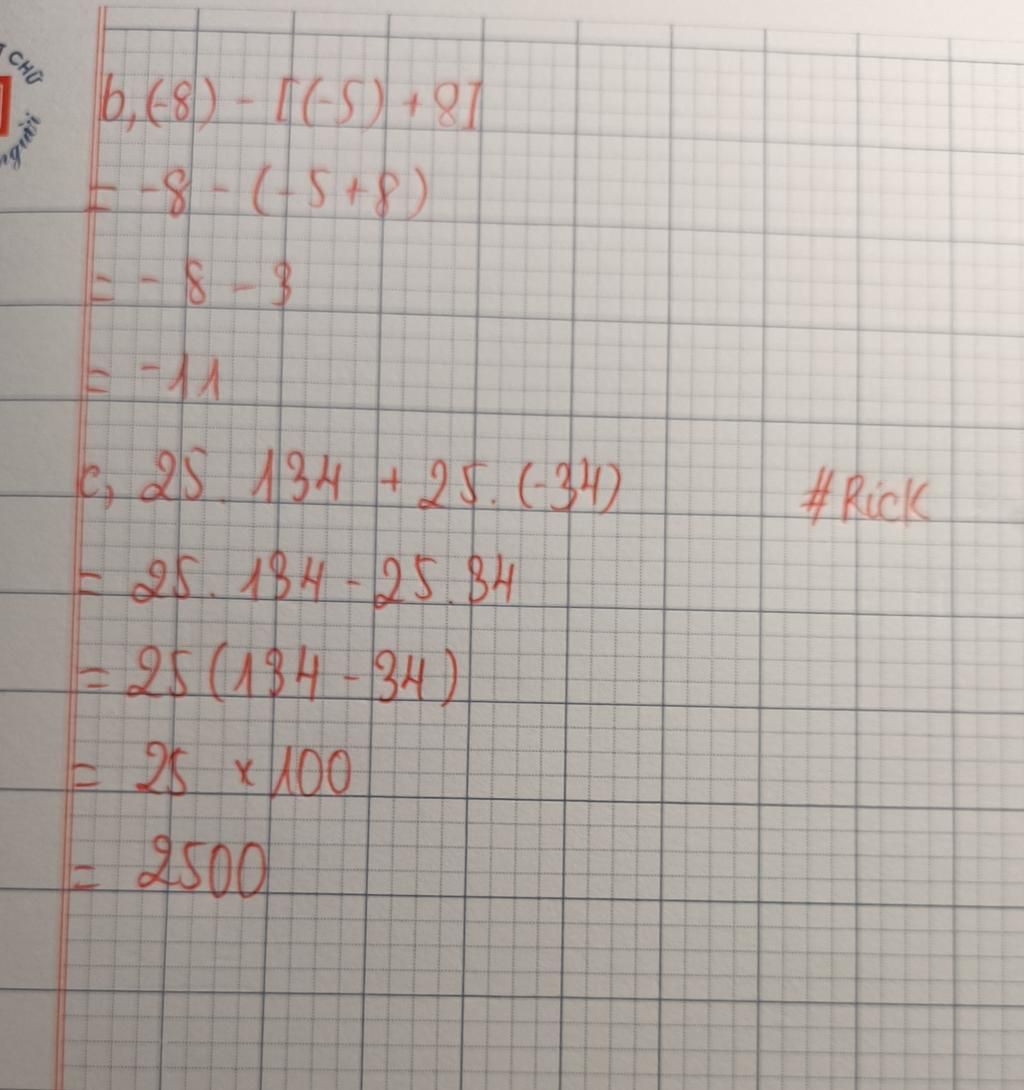 CHỮ
người
b, (-8) - [(-5) + 8]
= -8 - (-5 + 8)
= -8 - 3
= -11
c, 25 . 134 + 25 . (-34)
#Rick
= 25 . 134 - 25 . 34
= 25 (134 - 34)
= 25 x 100
= 2500